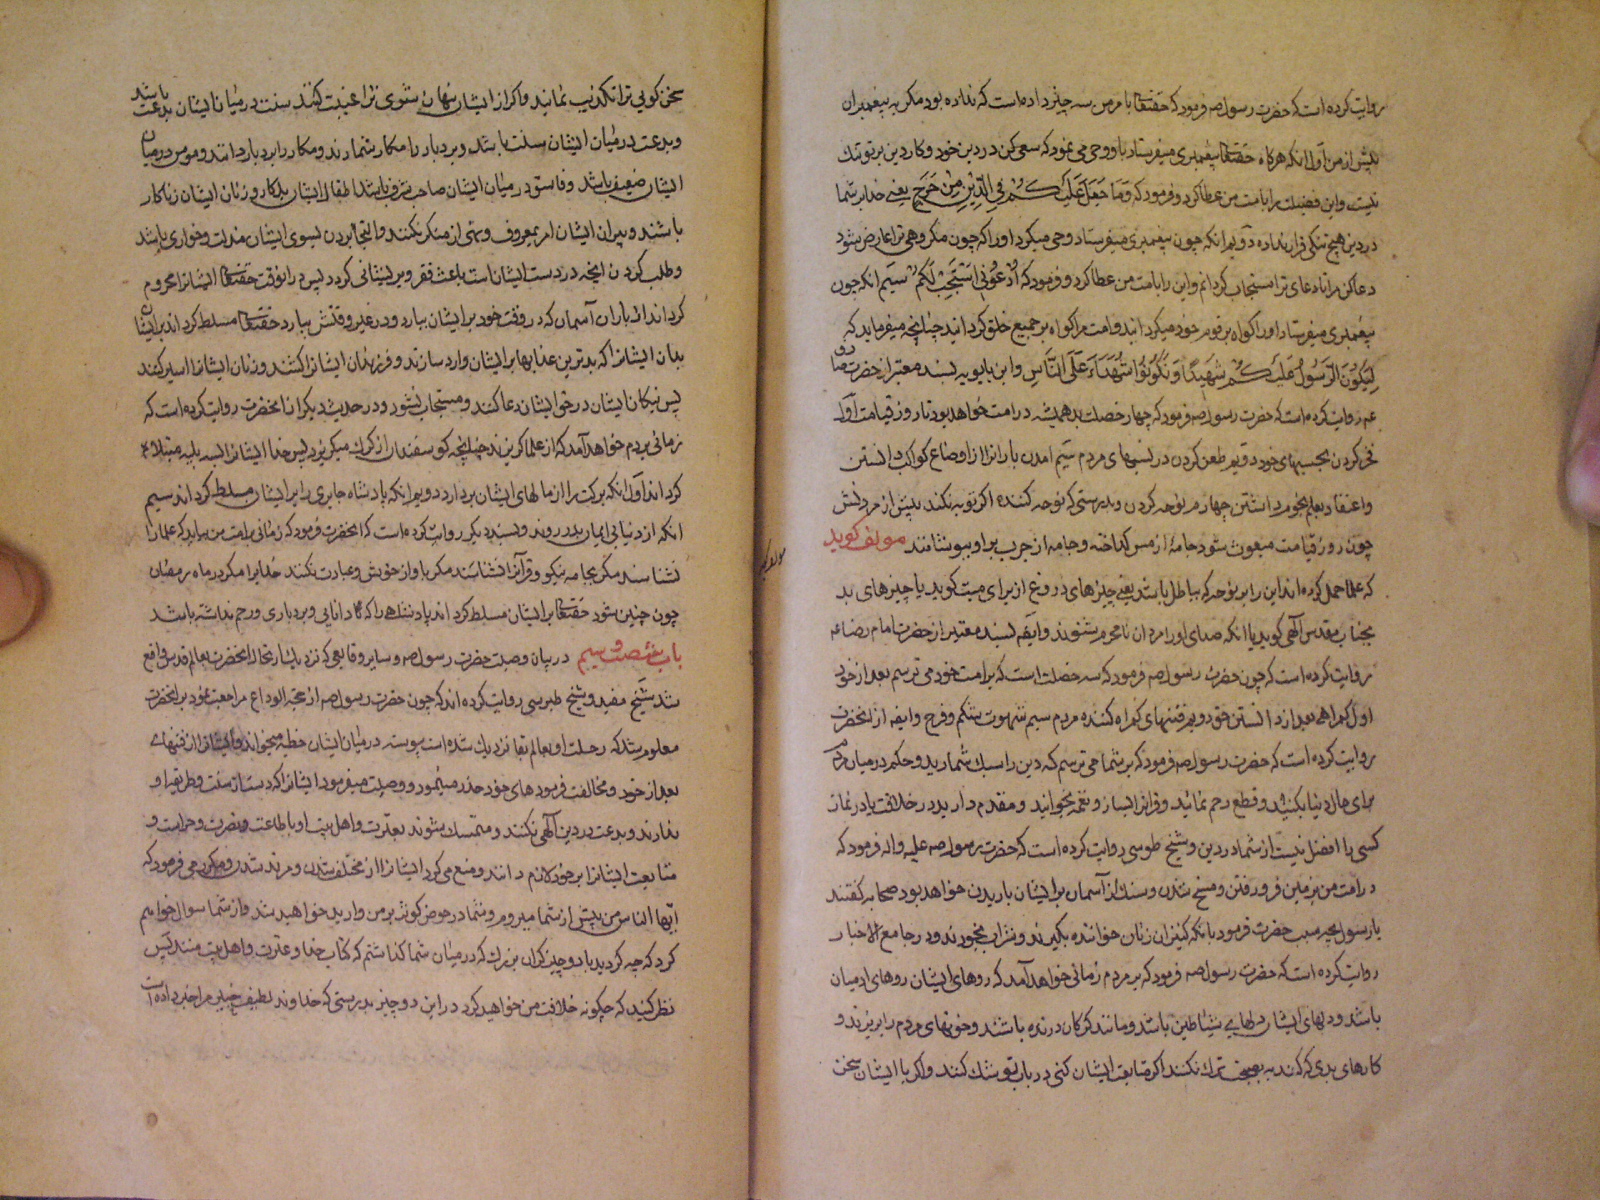 روایت کرده است که حضرت رسول صه فرمود که حقتعا بامت من سه چیز داده است که نداده بود مکر به پیغمبران
پیش از من اول آنکه هرکاه حقتعا پیغمبری میفرستاد باو وحی می نمود که سعی کن در دین خود و کار دین بر تو تنک
نیست و این فضیلت را بامت من عطا کرد و فرمود که وَمَا جَعَلَ عَلَیْکُمْ فِی الدِّینِ مِنْ حَرَجٍ یعنی خدا بر شما
در دین هیچ تنکی قرار نداده دویم آنکه چون پیغمبری میفرستاد وحی میکرد او را که چون مکروهی ترا عارض شود
دعا کن مرا تا دعای ترا مستجاب کردانم و این را بامت من عطا کرد و فرمود که اُدْعُونِی اَسْتَجِبْ لَکُمْ سیم آنکه چون
پیغمبری میفرستاد او را کواه بر قوم خود میکردانید و امت مرا کواه بر جمیع خلق کردانید چنانچه میفرماید که
لِیَکُونَ الرَّسُولُ عَلَیْکُمْ شَهِیدًا وَتَکُونُوا شُهَدَاءَ عَلَی النَّاسِ و ابن بابویه بسند معتبر از حضرت صادق
عم روایت کرده است که حضرت رسول صه فرمود که چهار خصلت بد همیشه در امت من خواهد بود تا روز قیامت اول
فخر کردن بحسبهای خود دویم طعن کردن در نسبهای مردم سیم آمدن باران را از اوضاع کواکب دانستن
و اعتقاد بعلم نجوم داشتن چهارم نوحه کردن و بدرستی که نوحه کننده اکر توبه نکند پیش از مردنش
چون روز قیامت مبعوث شود جامهٔ از مس کداخته و جامه از جرب بر او بپوشانند مؤلف کوید
که علما حمل کرده اند این را بر نوحه که بباطل باشد یعنی چیزهای دروغ از برای میت کوید یا چیزهای بد
بجناب مقدس الهی کوید یا آنکه صدای او را مردان نامحرم بشنوند و ایضه بسند معتبر از حضرت امام رضا عم
روایت کرده است که چون حضرت رسول صه فرمود که سه خصلت است که بر امت خود می ترسم بعد از خود
اول کمراهی بعد از دانستن حق دویم فتنهای کمراه کننده مردم سیم شهوت شکم و فرج و ایضه از آنحضرت
روایت کرده است که حضرت رسول صه فرمود که بر شما می ترسم که دین را سبک شمارید و حکم در میان مردم
برای مال دنیا بکنید و قطع رحم نمائید و قرآنرا بساز و نغمه بخوانید و مقدم دارید در خلافت یا در نماز
کسی را که افضل نیست از شما در دین و شیخ طوسی روایت کرده است که حضرت رسول صه علیه و اله فرمود که
در امت من بزمین فرو رفتن و مسخ شدن و سنک از آسمان بر ایشان باریدن خواهد بود صحابه کفتند
یا رسول بچه سبب حضرت فرمود بآنکه کنیزان و زنان خواننده بکیرند و شراب بخورند و در جامع الاخبار
روایت کرده است که حضرت رسول صه فرمود که بر مردم زمانی خواهد آمد که روهای ایشان روهای آدمیان
باشد و دلهای ایشان دلهای شیاطین باشد و مانند کرکان درنده باشند و خونهای مردم را بریزند و
کارهای بدی که کنند به نصیحت ترک نکنند اکر متابعت ایشان کنی در باب تو شک کنند و اکر با ایشان سخن
سخن کویی ترا تکذیب نمایند و اکر از ایشان پنهان شوی ترا غیبت کنند سنت در میان ایشان بدعت باشد
و بدعت در میان ایشان سنت باشد و بردبار را مکار شمارند و مکار را بردبار دانند و مومن در میان
ایشان ضعیف باشد و فاسق در میان ایشان صاحب شرف باشد اطفال ایشان بدکار و زنان ایشان زناکار
باشند و پیران ایشان امر بمعروف و نهی از منکر نکنند و التجا بردن بسوی ایشان مذلت و خواری باشد
و طلب کردن آنچه در دست ایشان است باعث فقر و پریشانی کردد پس در آنوقت حقتعا ایشانرا محروم
کرداند از باران آسمان که در وقت خود بر ایشان نبارد و در غیر وقتش ببارد و حقتعا مسلط کرداند بر ایشان
بدان ایشانرا که بدترین عذابها بر ایشان وارد سازند و فرزندان ایشانرا کشند و زنان ایشانرا اسیر کنند
پس نیکان ایشان در حق ایشان دعا کنند و مستجاب نشود و در حدیث دیکر از آنحضرت روایت کرده است که
زمانی بر مردم خواهد آمد که از علما کریزند چنانچه کوسفندان از کرک میکریزد پس خدا ایشانرا بسه بلیه مبتلا
کرداند اول آنکه برکت را از مالهای ایشان بردارد دویم آنکه پادشاه جابری را بر ایشان مسلط کرداند سیم
آنکه از دنیا بی ایمان بدر روند و بسند دیکر روایت کرده است که آنحضرت فرمود که زمانی بر امت من بیاید که علما را
نشناسند مکر بجامه نیکو و قرآنرا نشناسند مکر باواز خوش و عبادت نکنند خدا را مکر در ماه رمضان
چون چنین شود حقتعا بر ایشان مسلط کرداند پادشاهی را که دانایی و بردباری و رحم نداشته باشد
باب شصت و سیم در بیان وصیت حضرت رسول صه و سایر وقایعی که نزدیک بارتحال آنحضرت بعالم قدس واقع
شد شیخ مفید و شیخ طبرسی روایت کرده اند که چون حضرت رسول صه از حجة الوداع مراجعت نمود بر آنحضرت
معلوم شد که رحلت او بعالم بقا نزدیک شده است پیوسته در میان ایشان خطبه میخواند و ایشانرا از فتنهای
بعد از خود و مخالفت فرمودهای خود حذر مینمود و وصیت میفرمود ایشانرا که دست از سنت و طریقه او
ندارند و بدعت در دین الهی نکنند و متمسک شوند بعترت و اهل بیت او باطاعت و نصرت و حراست و
متابعت ایشانرا بر خود لازم دانند و منع می کرد ایشانرا از مختلف شدن و مرتد شدن و مکرر می فرمود که
ایها الناس من پیش از شما میروم و شما در حوض کوثر بر من وارد خواهید شد و از شما سوال خواهم
کرد که چه کردید با دو چیز کران بزرک که در میان شما کذاشتم که کتاب خدا و عترت و اهل بیت منند پس
نظر کنید که چکونه خلافت من خواهید کرد در این دو چیز بدرستی که خداوند لطیف خبیر مرا خبر داده است